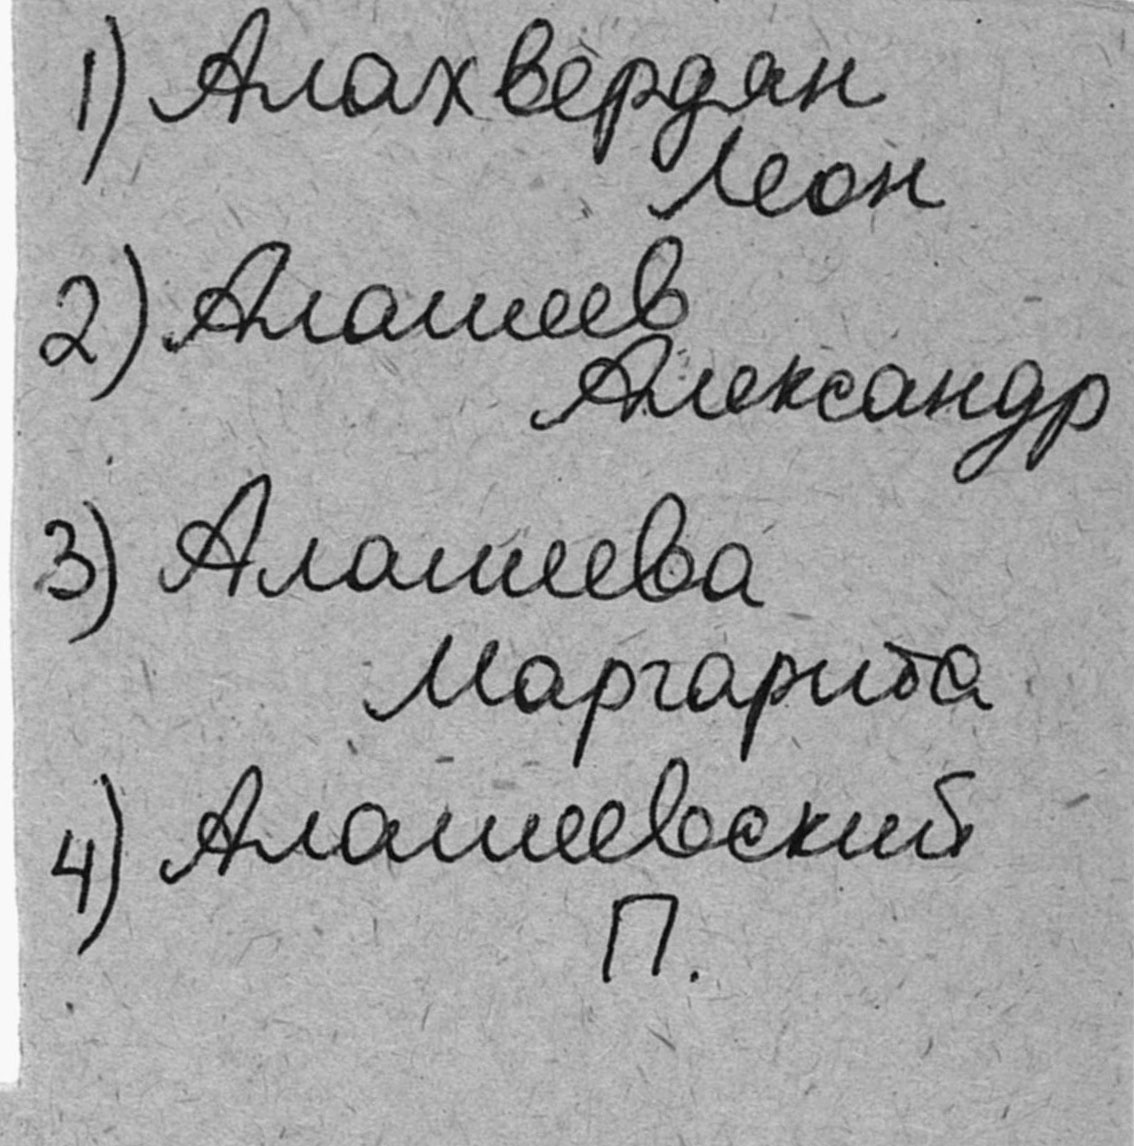 1) Алахвердян
Леон
2) Алашеев
Александр
3) Алашеева
Маргарита
4) Алашеевский
П.